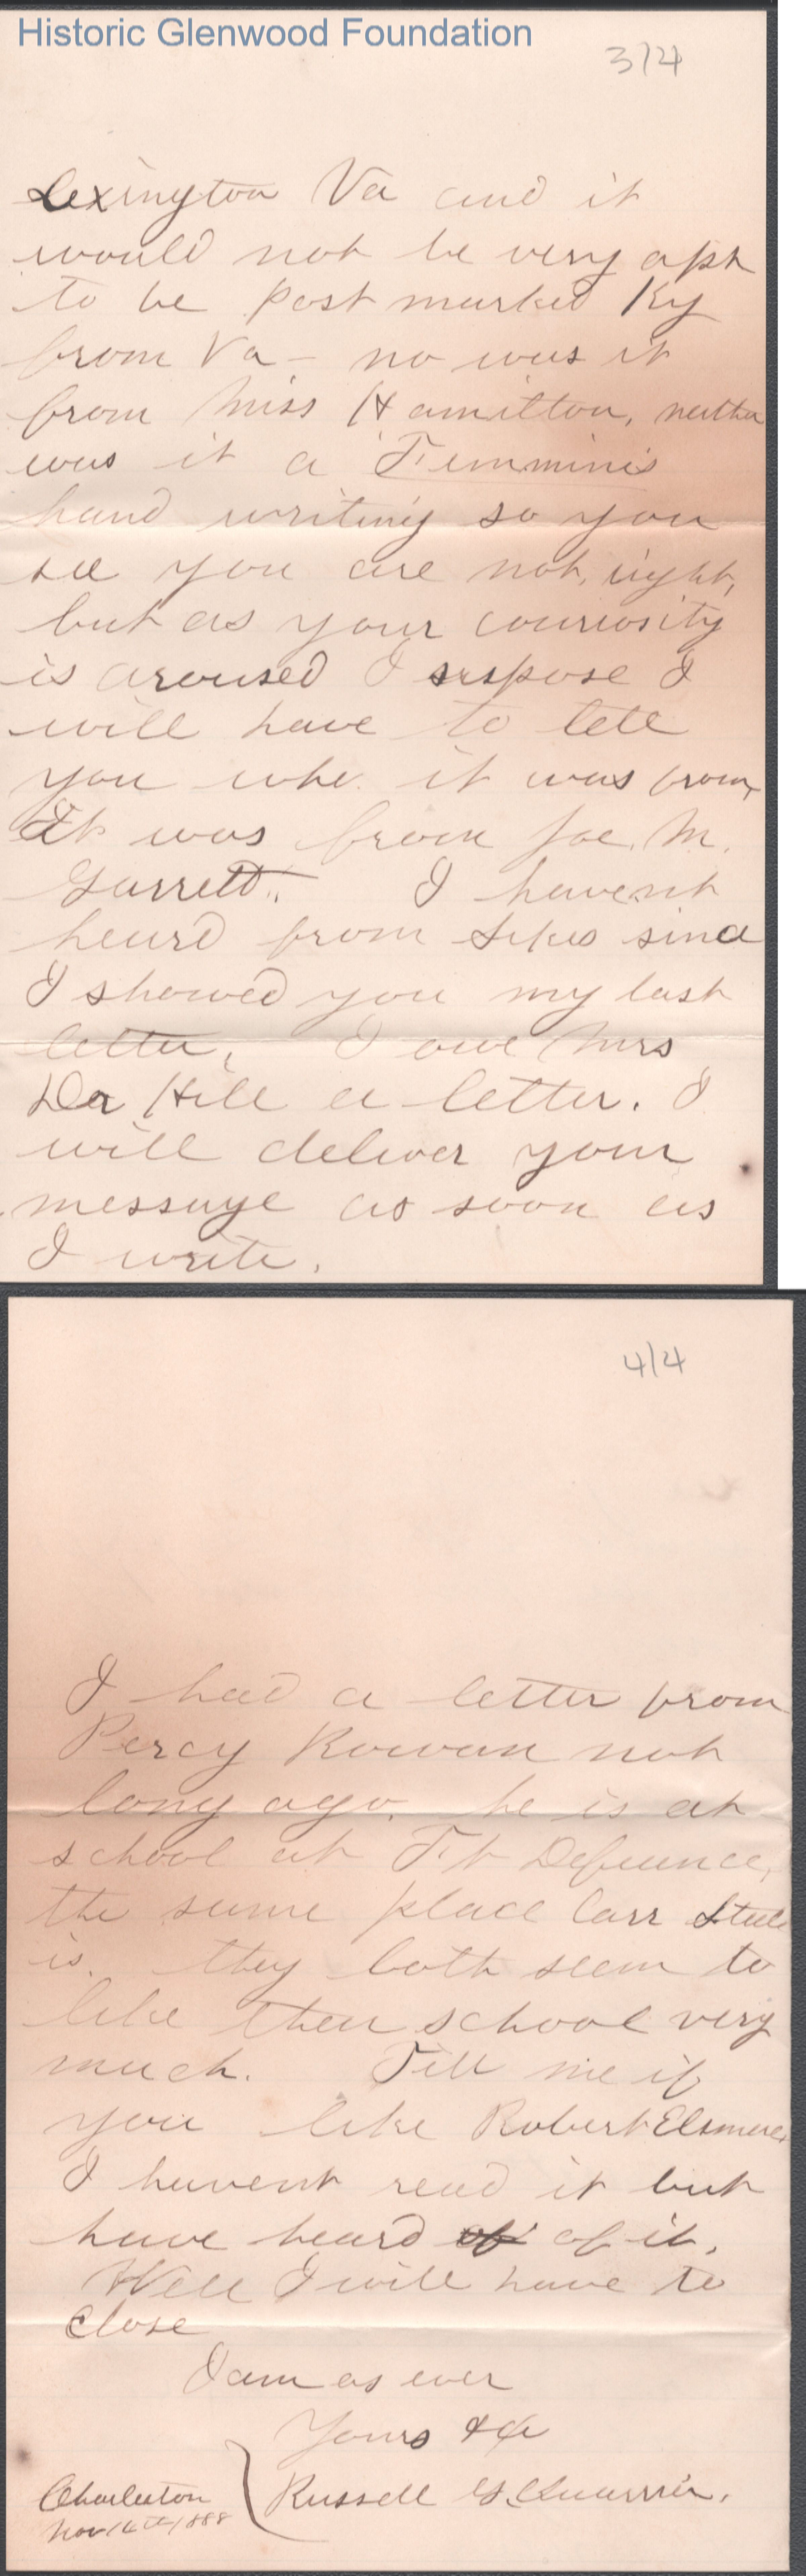 Historic Glenwood Foundation
3/4
Lexington Va and it
would not be very apt
to be post marked Ky
from Va - no was it
from Miss Hamilton, neither
was it a Femminis
hand writing so you
see you are not, right,
but as your couriosity
is aroused I suspose I
will have to tell
you who it was from
It was from Joe. M.
Garrett. I havent
heard from Sikes since
I showed you my last
letter. I owe Mrs
Dr Hill a letter. I
will deliver your
message as soon as
I write.
4/4
I had a letter from
Percy Rowan not
long ago. he is at
school at Ft Defiance,
the same place Carr Steele
is. they both seem to
like their school very
much. Tell me if
you like Robert Elsmere
I havent read it but
have heard of of it.
Well I will have to
Close
I am as ever
Yours &c
Russell G. Quarrier.
Charleston
Nov 1888